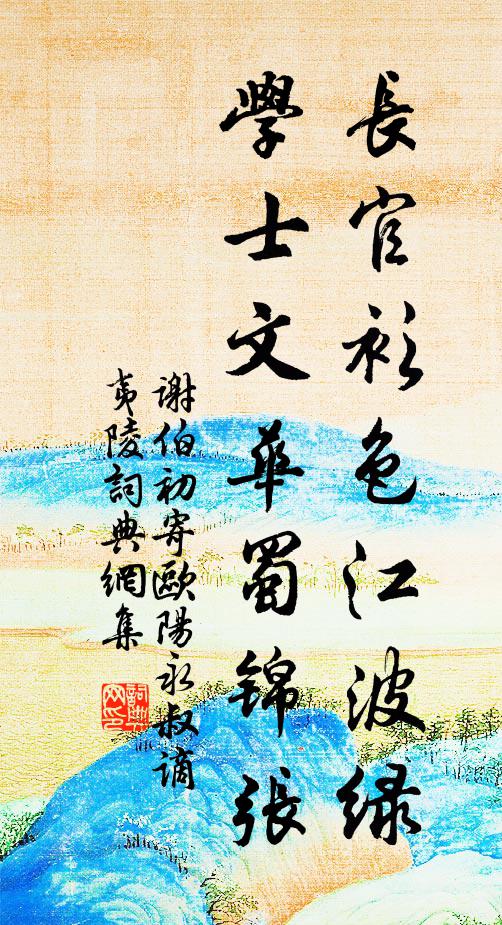 長官衫色江波緑
學士文華蜀錦張
謝伯初寄歐陽永叔謫
夷陵詞典網集
詞典網印